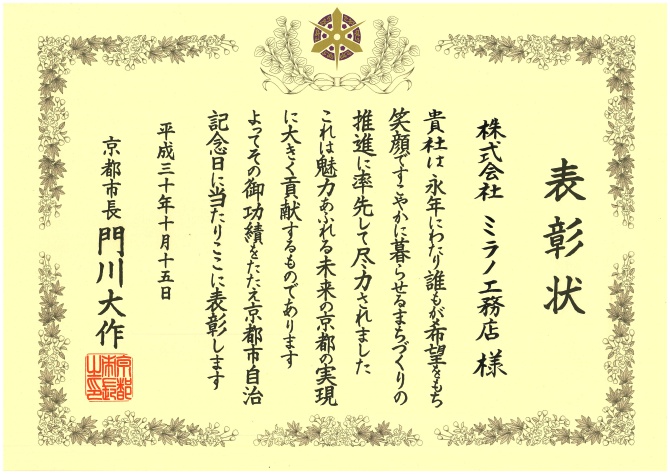 表彰状
株式会社 ミラノ工務店 様
貴社は永年にわたり誰もが希望をもち
笑顔ですこやかに暮らせるまちづくりの
推進に率先して尽力されました
これは魅力あふれる未来の京都の実現
に大きく貢献するものであります
よってその御功績をたたえ京都市自治
記念日に当たりここに表彰します
平成三十年十月十五日
京都市長 門川大作